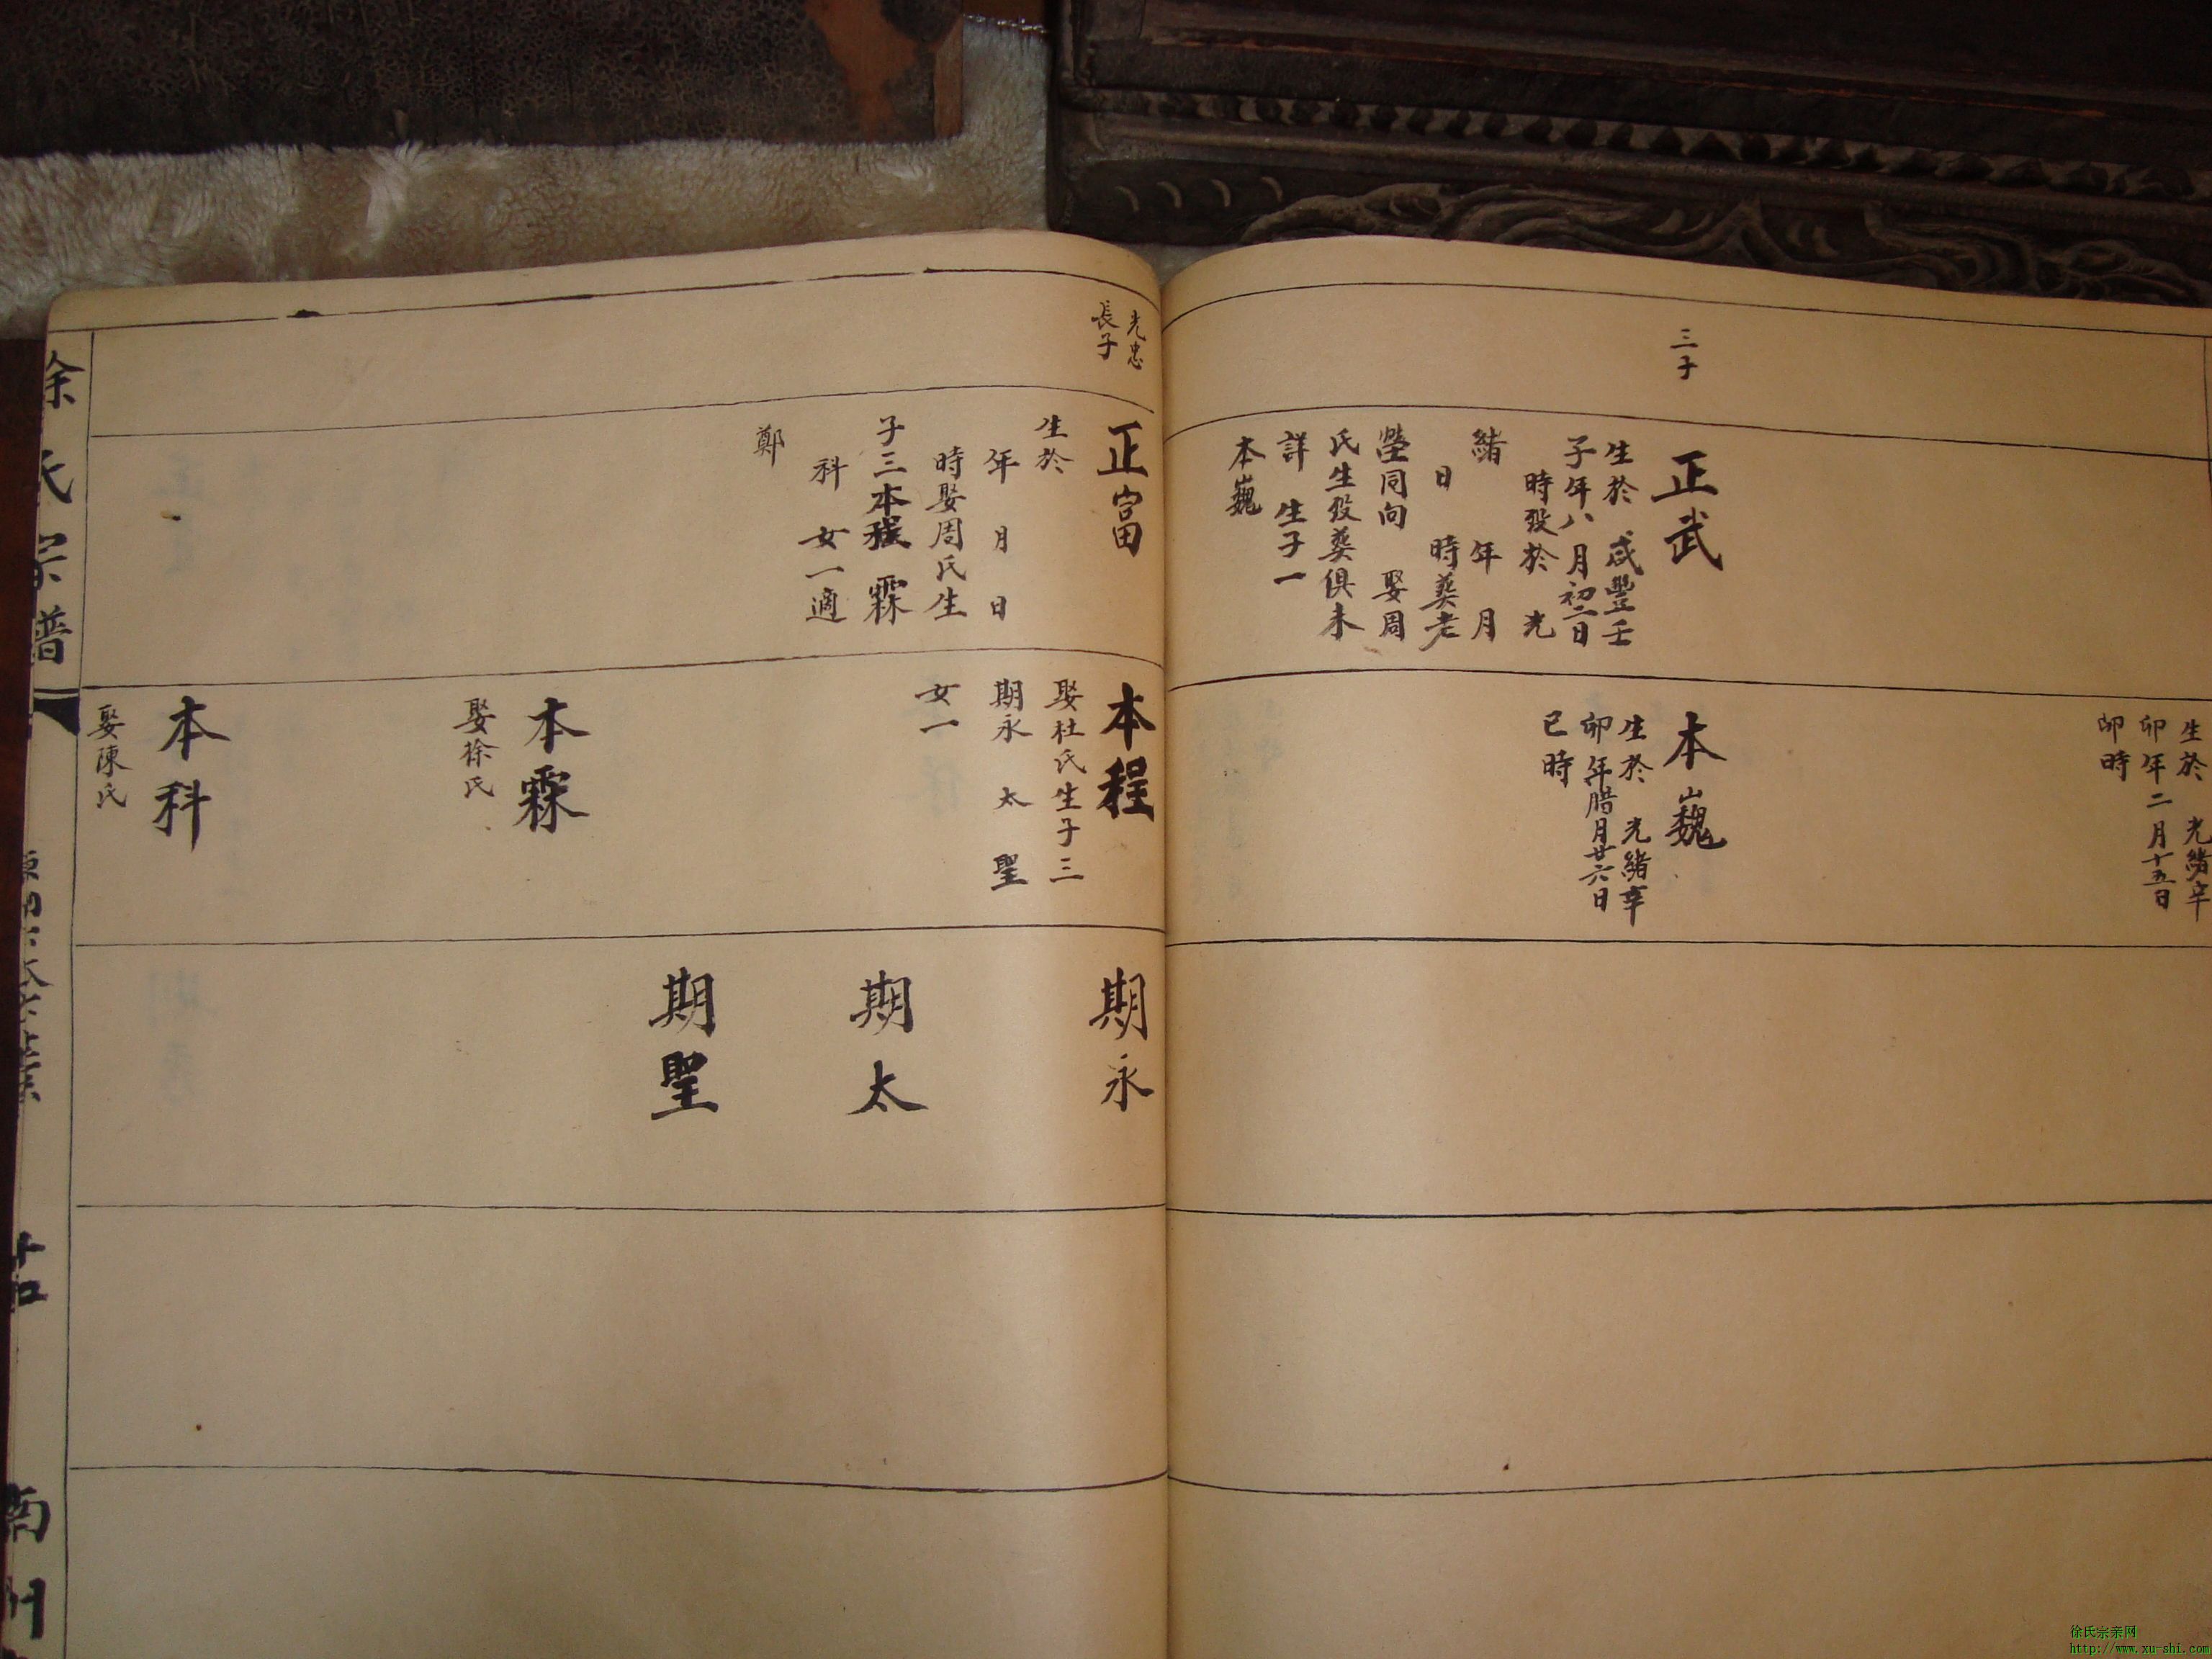 三子
正武
生於 咸豐壬
子年八月初二日
時殁於 光
緒 年 月
日 時葬老
塋同向 娶周
氏生殁葬俱未
詳 生子一
本巍
生於 光緒辛
卯年二月十五日
卯時
本巍
生於 光緒辛
卯年腊月廿六日
巳時
光忠
長子
正富
生於
年 月 日
時娶周氏生
子三本程 霖
科 女一適
鄭
本程
娶杜氏生子三
期永 太 聖
女一
本霖
娶徐氏
本科
娶陳氏
期永
期太
期聖
徐氏宗譜
南州
徐氏宗亲网
http://www.xu-shi.com